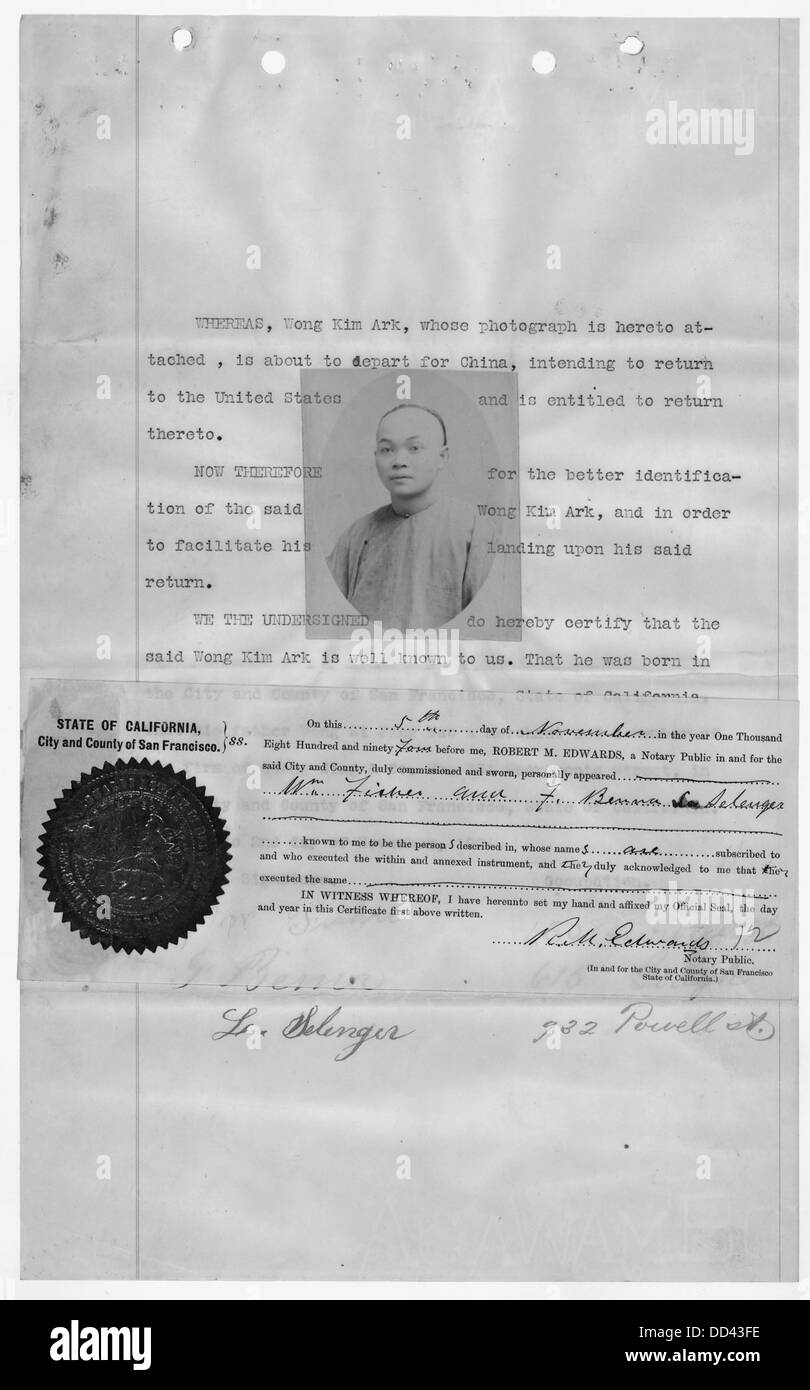 WHEREAS, Wong Kim Ark, whose photograph is hereto at-
tached , is about to depart for China, intending to return
to the United States and is entitled to return
thereto.
NOW THEREFORE for the better identifica-
tion of the said Wong Kim Ark, and in order
to facilitate his landing upon his said
return.
WE THE UNDERSIGNED do hereby certify that the
said Wong Kim Ark is well known to us. That he was born in
the City and County of San Francisco, State of California,
STATE OF CALIFORNIA,
City and County of San Francisco. } ss.
On this 5th day of November in the year One Thousand
Eight Hundred and ninety four before me, ROBERT M. EDWARDS, a Notary Public in and for the
said City and County, duly commissioned and sworn, personally appeared
Wm. Fisher and F. Benna Lo Selenger
known to me to be the person s described in, whose name s are subscribed to
and who executed the within and annexed instrument, and they duly acknowledged to me that they
executed the same
IN WITNESS WHEREOF, I have hereunto set my hand and affixed my Official Seal, the day
and year in this Certificate first above written.
R. M. Edwards
Notary Public.
(In and for the City and County of San Francisco
State of California.)
Lo. Selenger 932 Powell st.
alamy
alamy
a alamy stock photo
DD43FE
www.alamy.com